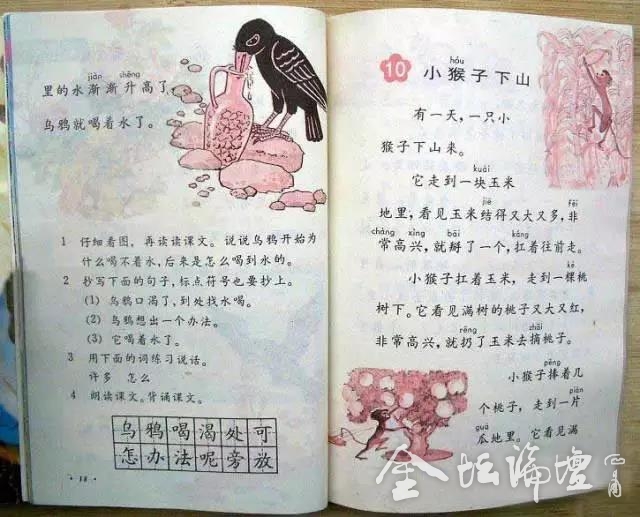 jiàn shēng
里的水渐渐升高了,
乌鸦就喝着水了。
1 仔细看图,再读读课文。说说乌鸦开始为
什么喝不着水,后来是怎么喝到水的。
2 抄写下面的句子,标点符号也要抄上。
(1) 乌鸦口渴了,到处找水喝。
(2) 乌鸦想出一个办法。
(3) 它喝着水了。
3 用下面的词练习说话。
许多 怎么
4 朗读课文。背诵课文。
乌鸦喝渴处可
怎办法呢旁放
· 18 ·
hóu
10 小猴子下山
有一天,一只小
猴子下山来。
kuài
它走到一块玉米
jiē fēi
地里,看见玉米结得又大又多,非
cháng xìng bāi káng
常高兴,就掰了一个,扛着往前走。
小猴子扛着玉米,走到一棵桃
树下。它看见满树的桃子又大又红,
rēng zhāi
非常高兴,就扔了玉米去摘桃子。
pěng
小猴子捧着几
piàn
个桃子,走到一片
guā
瓜地里。它看见满
金坛论坛